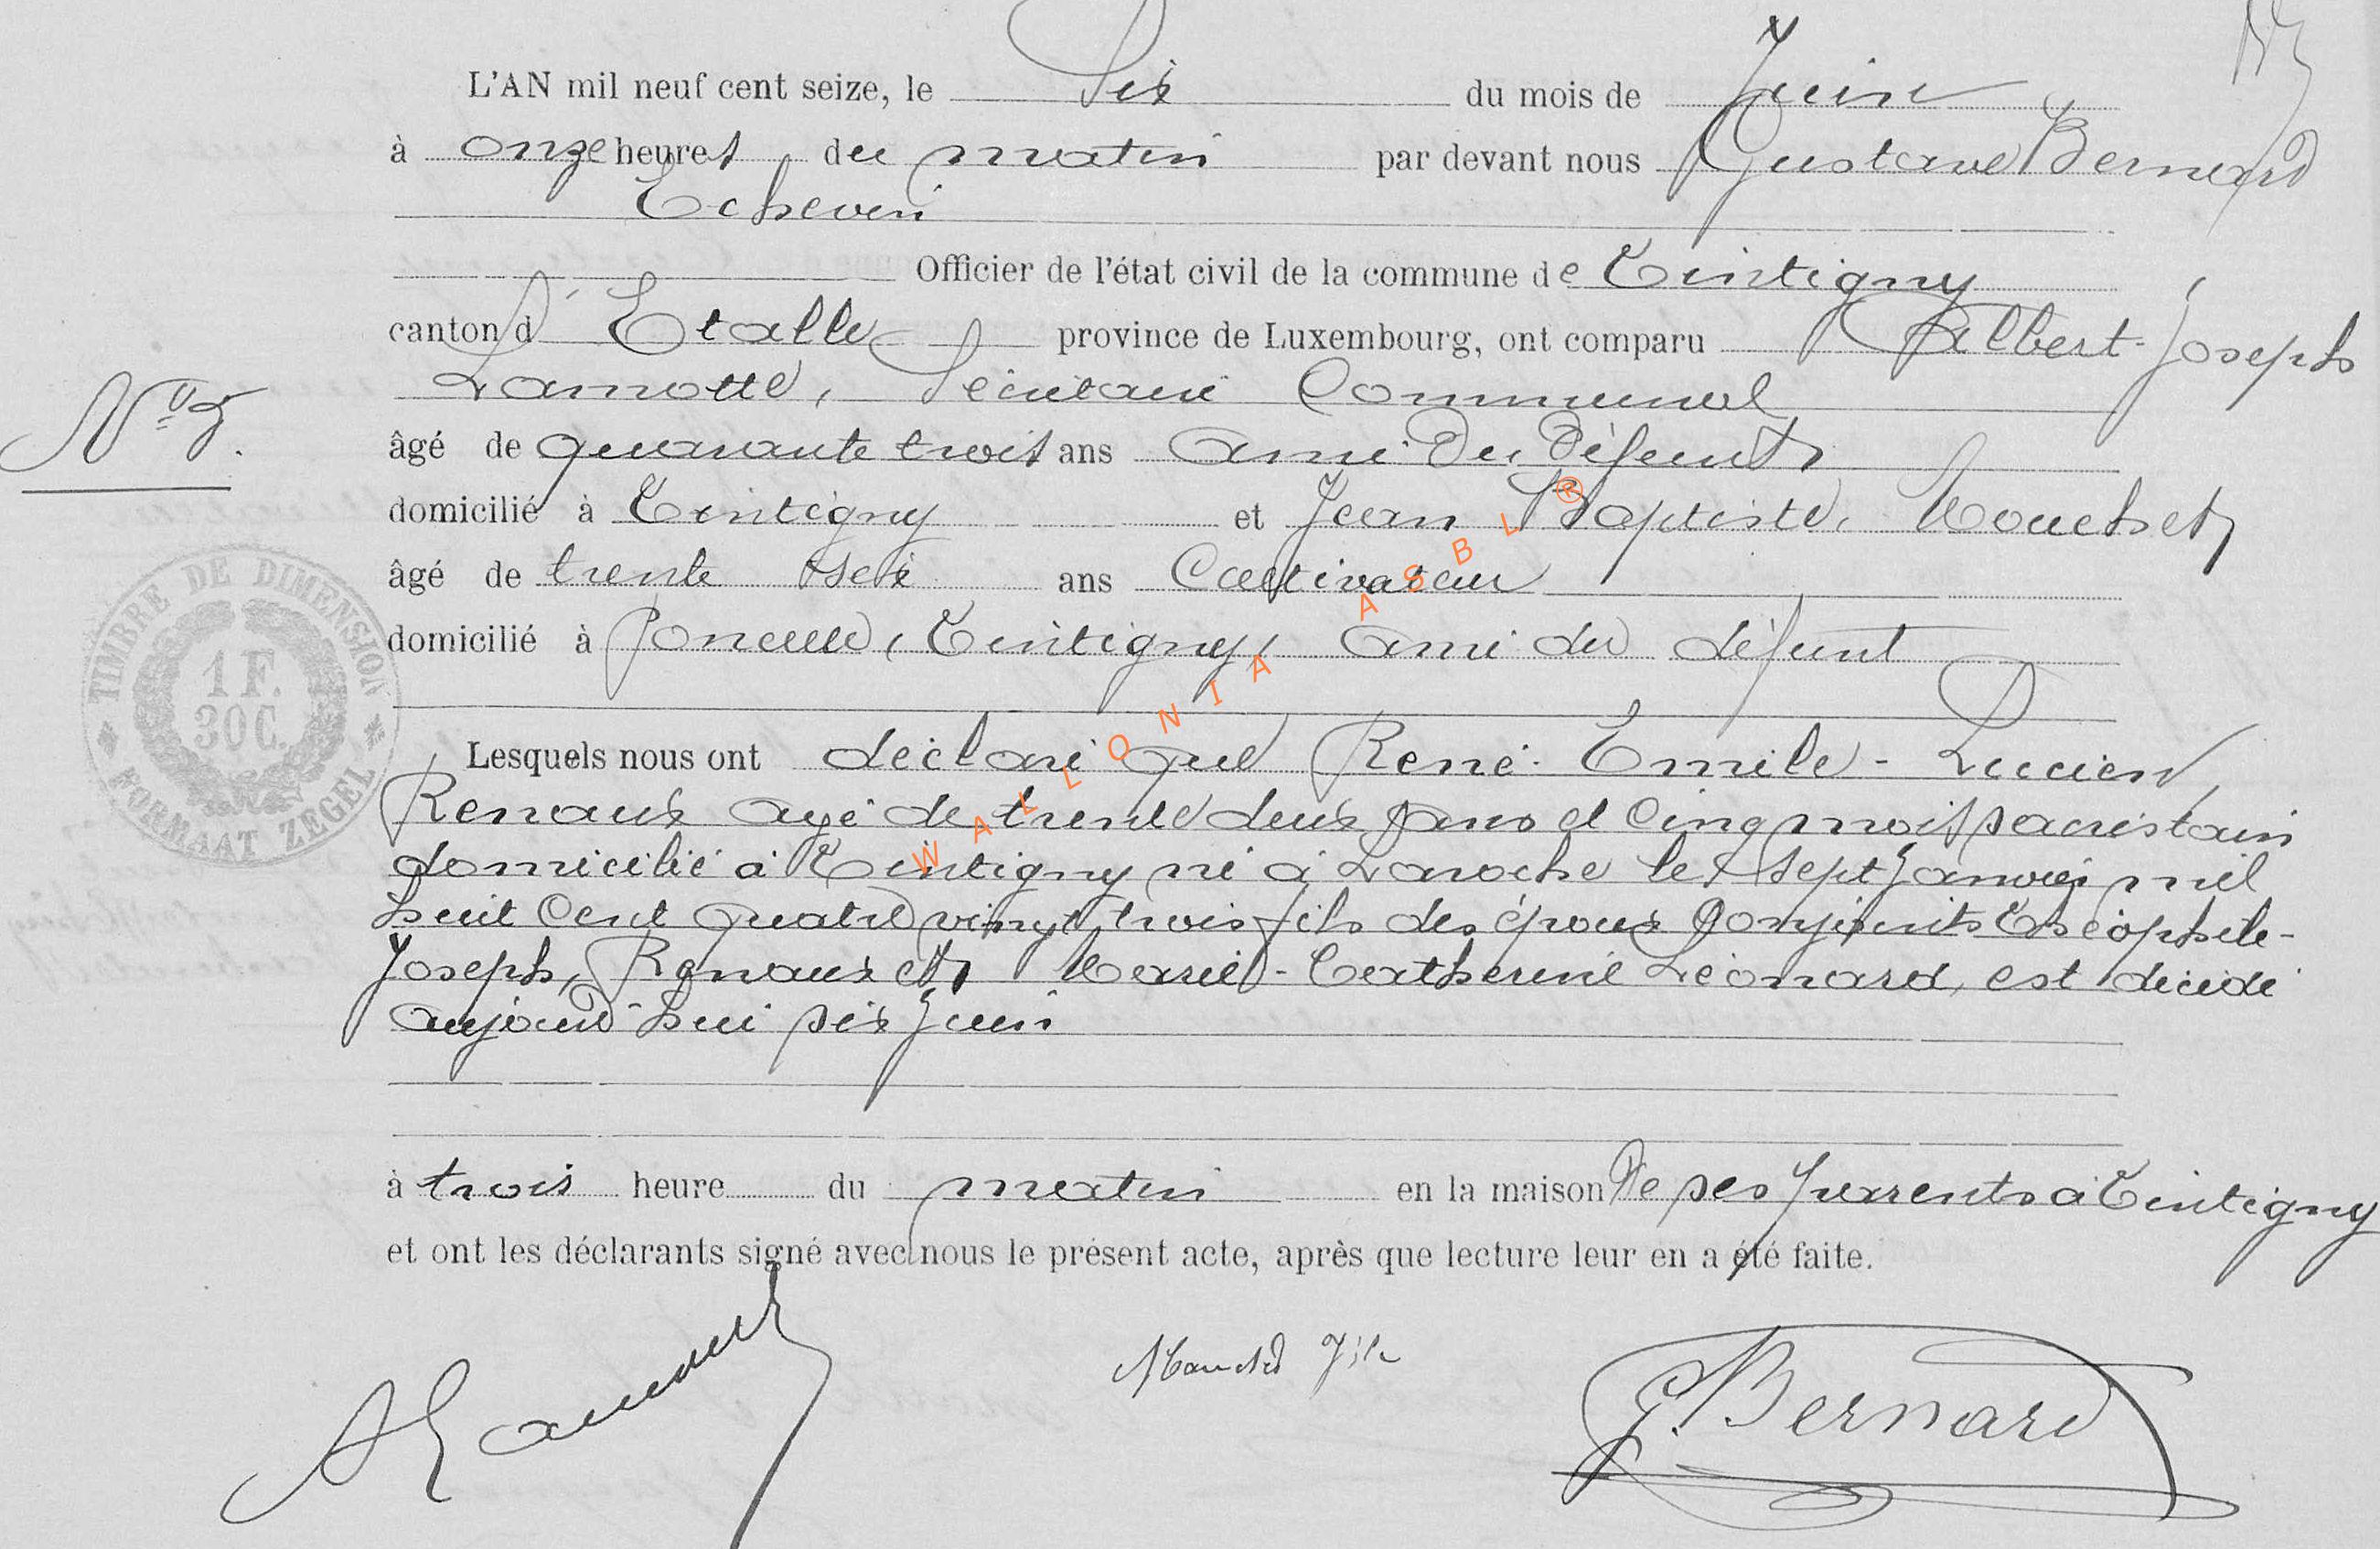 L'AN mil neuf cent seize, le Six du mois de Juin
à onze heures du matin par devant nous Gustave Bernard
Echevin
Officier de l'état civil de la commune de Tintigny
canton d' Etalle province de Luxembourg, ont comparu Albert-Joseph
Lamotte, Secrétaire Communal
N°
âgé de quarante trois ans ami du défunt
domicilié à Tintigny et Jean Baptiste, Mouchet
âgé de trente six ans Cultivateur
domicilié à Poncelle, Tintigny, ami du défunt
TIMBRE DE DIMENSION
1 F.
30 C.
FORMAAT ZEGEL
Lesquels nous ont déclaré que René-Emile-Lucien
Renaux agé de trente deux ans et Cinq mois sacristain
domicilié à Tintigny né à Laroche le sept Janvier mil
huit Cent quatre vingt trois fils des époux Conjoints Théophile-
Joseph, Renaux et Marie-Catherine Léonard, est décédé
aujourd'hui six Juin
à trois heure du matin en la maison de ses parents à Tintigny
et ont les déclarants signé avec nous le présent acte, après que lecture leur en a été faite.
ALamotte Mouchet Fils G. Bernard
WALLONIA ASBL ®